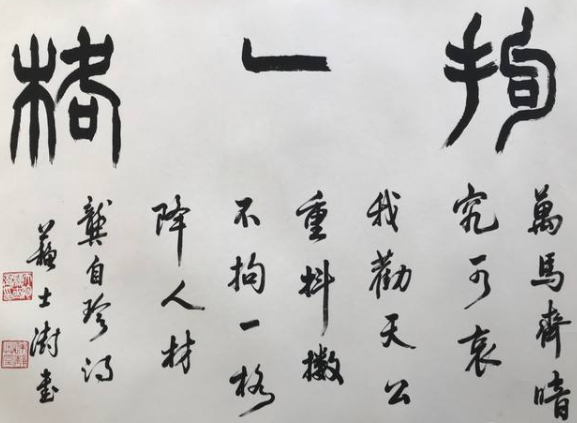 拘一格
萬馬齊喑
究可哀
我勸天公
重抖擻
不拘一格
降人材
龔自珍詩
蘇士澍書